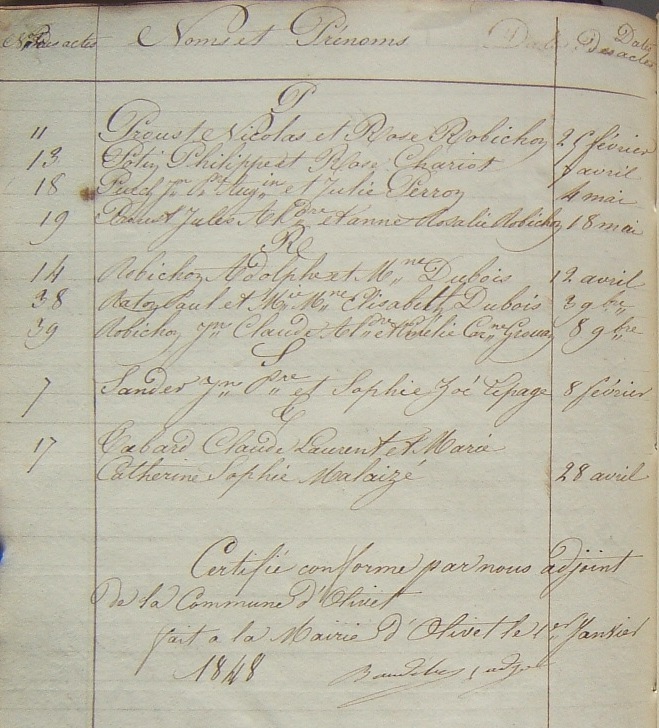 Nos des actes Noms et Prénoms Dates des actes
P
11 Proust Nicolas et Rose Robichon 25 février
13 Philippe et Rose Chariot 1 avril
18 Jn et Julie Perron 4 mai
19 Proust Jules et anne Rosalie Robichon 18 mai
R
14 Robichon Adolphe et Mne Dubois 12 avril
38 Paul et Mne Elisabeth Dubois 3 9bre
39 Robichon Jn Claude et Amélie 8 9bre
S
7 Sander Jn Pre et Sophie Zoé Lepage 8 février
T
17 Tabard Claude Laurent et Marie
Catherine Sophie Malaizé 28 avril
Certifié conforme par nous adjoint
de la Commune d'Olivet
fait a la Mairie d'Olivet le 1er Janvier
1848